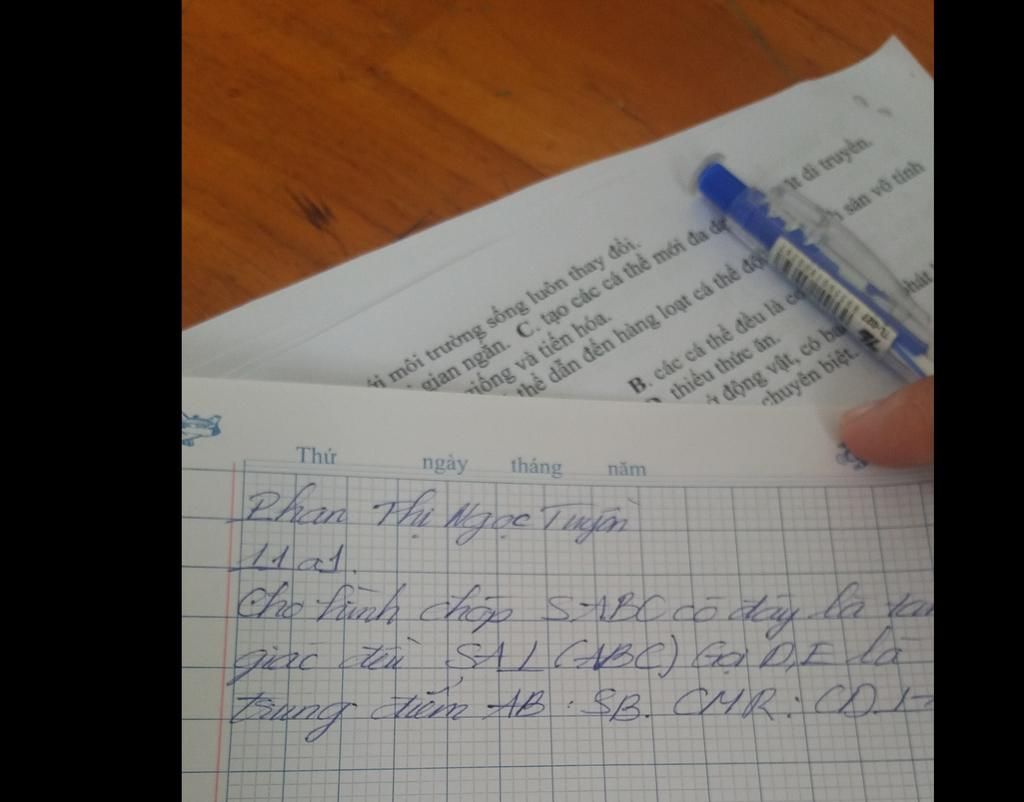 ít di truyền.
sản vô tính
môi trường sống luôn thay đổi.
gian ngắn. C. tạo các cá thể mới đa
giống và tiến hóa.
thể dẫn đến hàng loạt cá thể
B. các cá thể đều là
thiếu thức ăn.
động vật, có
chuyên biệt.
Thứ ngày tháng năm
Phan Thị Ngọc Tuyền
11a1.
Cho hình chóp SABC có đáy là
giác đều SA⊥(ABC) Gọi D,E là
trung điểm AB, SB. CMR: CD⊥